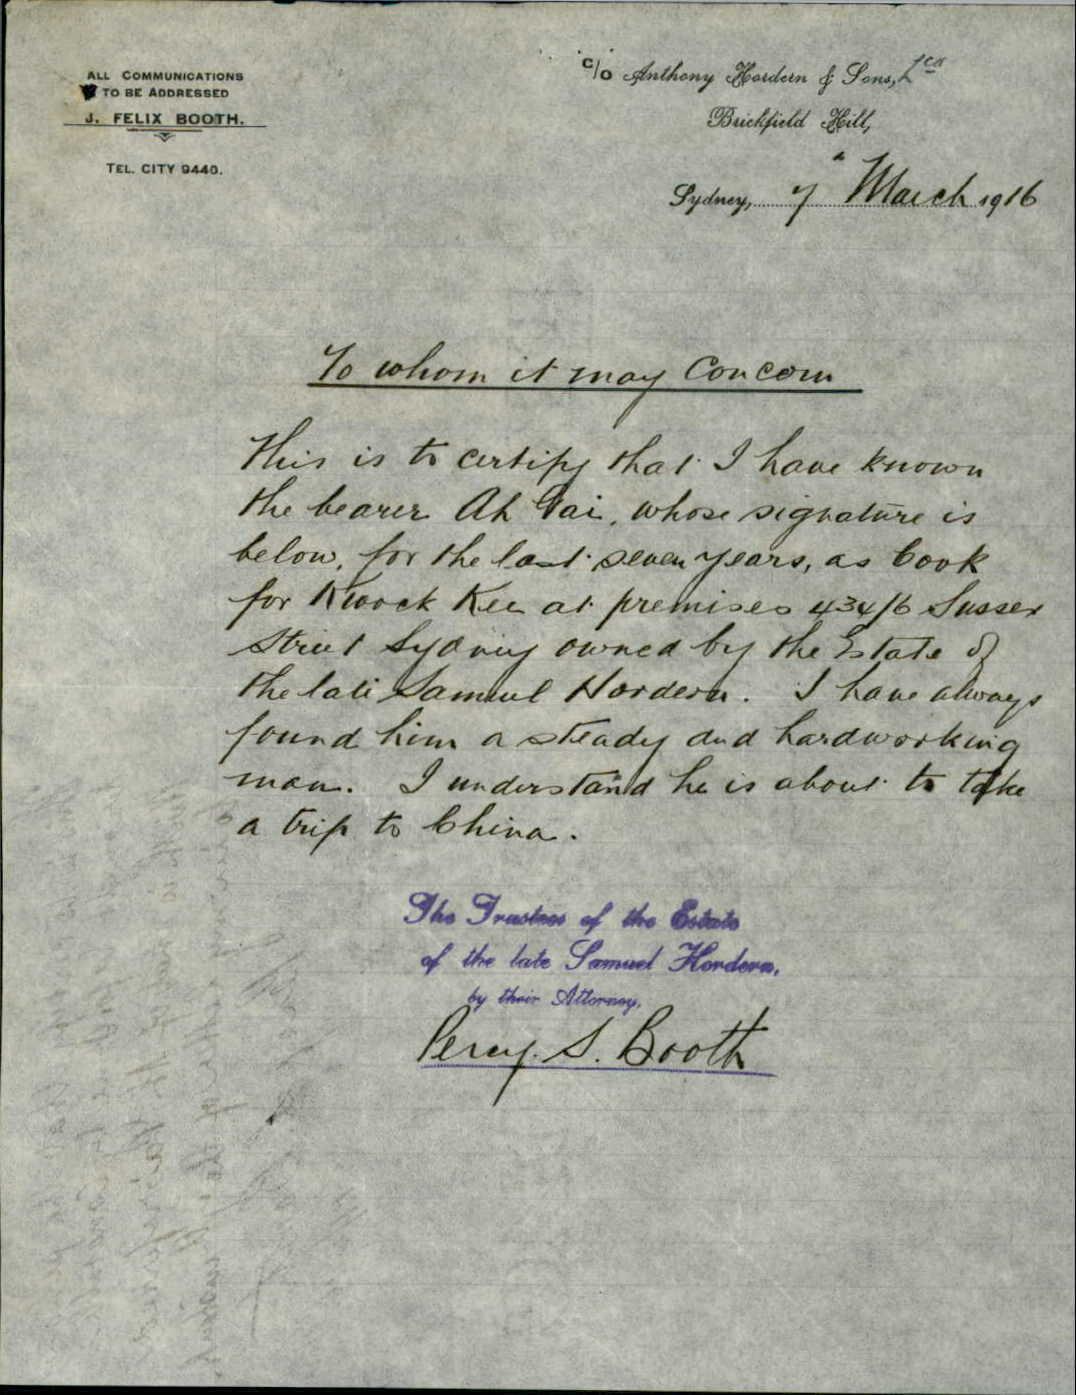 ALL COMMUNICATIONS
TO BE ADDRESSED
J. FELIX BOOTH.
TEL. CITY 9440.
C/o Anthony Hordern & Sons, Ltd
Brickfield Hill,
Sydney, 7 March 1916
To whom it may Concern
This is to certify that I have known
the bearer Ah Gai, whose signature is
below, for the last seven years, as Cook
for Kwock Kee at premises 434/6 Sussex
Street Sydney owned by the Estate of
the late Samuel Hordern. I have always
found him a steady and hardworking
man. I understand he is about to take
a trip to China.
The Trustees of the Estate
of the late Samuel Hordern,
by their Attorney,
Percy. S. Booth